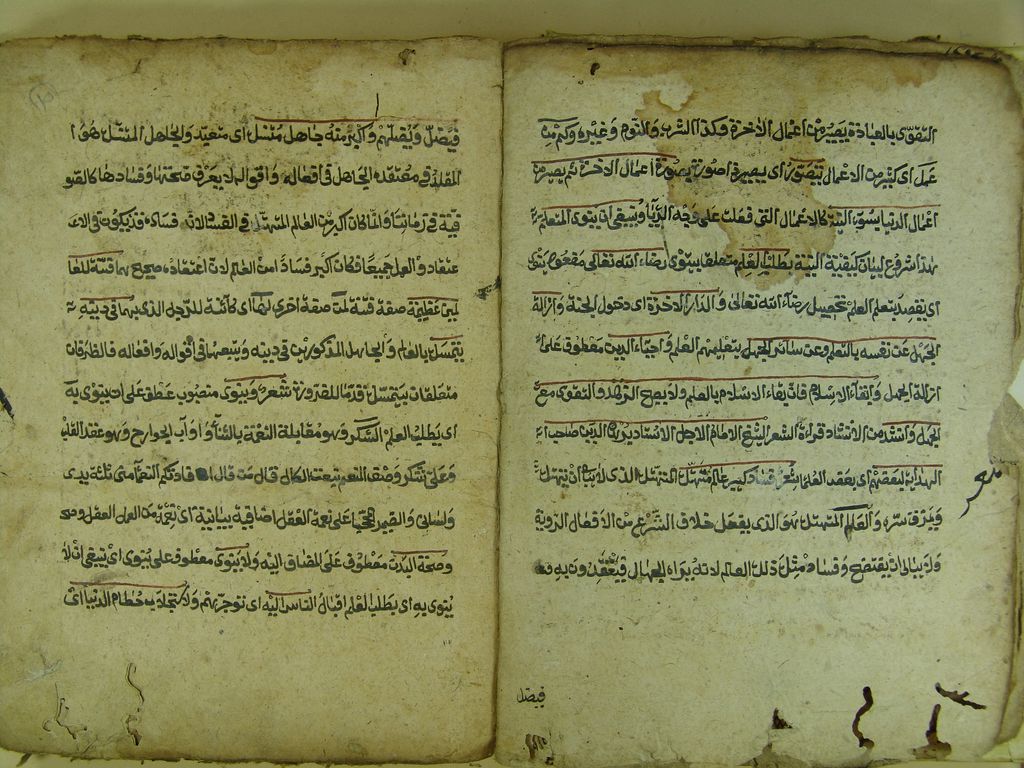 التقوى بالعبادة يصير من اعمال الآخرة وكذا الشرب والنوم وغيره وكم من
عمل اى كثير من الاعمال يتصور اى يصير اصورة بصورة اعمال الآخرة ثم يصير من
اعمال الدنيا بسوء النية كالاعمال التى فعلت على وجه الرياء وينبغى ان ينوى المتعلم
هذا شروع لبيان كيفية النية بطلب العلم متعلق بينوى رضاء الله تعالى مفعول ينوى
اى يقصد بتعلم العلم تحصيل رضاء الله تعالى والدار الآخرة اى دخول الجنة وازالة
الجهل عن نفسه بالتعلم وعن سائر الجهل بتعليمهم العلم واحياء الدين معطوف على
ازالة الجهل وابقاء الاسلام فان بقاء الاسلام بالعلم ولا يصح الزهد والتقوى مع
الجهل وانشد من الانشاد قراءة الشعر الشيخ الامام الاجل الاستاد برهان الدين صاحب
الهداية لبعضهم اى بعض العلماء شعر فساد كبير عالم متهتك المتهتك الذى لا يبالى ان يتهتك
ويمزق ستره والعالم المتهتك هو الذى يفعل خلاف الشرع من الافعال الردية
ولا يبالى ان يفتضح وفساد مثل ذلك العالم لانه يراه الجهال فيعتقدونه به
فيضل
فيضل ويضلهم واكبر منه جاهل متنسك اى متعبد والجاهل المتنسك هو
المقلد فى معتقده الجاهل فى افعاله واقواله لا يعرف صحتها وفسادها كالصو
فية فى زماننا وانما كان اكبر من العالم المتهتك فى الفساد لانه فساده قد يكون فى الاعـ
ـتقاد والعمل جميعا فكان اكبر فسادا من العالم لان اعتقاده صحيح هما فتنة للعا
لمين عظيمة صفة فتنة لمن صفة اخرى لها اى كائنة للرجل الذى بهما فى دينه
يتمسك بالعالم والجاهل المذكورين فى دينه ويتبعهما فى اقواله وافعاله فالظرفان
متعلقان بيتمسك قدما للضرورة شعر وينوى منصوب عطف على ان ينوى به
اى بطلب العلم الشكر وهو مقابلة النعمة بالثناء واداب الجوارح وهو عقد القلب
وعلى شكر وصف المنعم بنعت الكمال قال من قال افادتكم النعماء منى ثلثة يدى
ولسانى والضمير المحجبا على نعمة العقل اضافية بيانية اى نعمة هى العقل
وصحة البدن معطوف على المضاف اليه ولا ينوى معطوف على ينوى اى ينبغى ان لا
ينوى به اى بطلب العلم اقبال الناس اليه اى توجههم ولا استجلاب حطام الدنيا اى